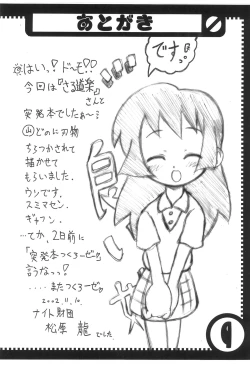 あとがき
はい、！ド〜モ！！
今回は『さる道楽』
さんと
突発本でしたぁ〜！
山どのに刃物
ちらつかされて
描かせて
もらいました．
ウソです．
スミマセン．
ギャフン．
…てか、2日前に
「突発本つくろーぜ」
言うなっ！
....またつくろーぜ
2002.11.10.
ナイト財団
松原 龍でした
ですっ！
良いしゃ
9